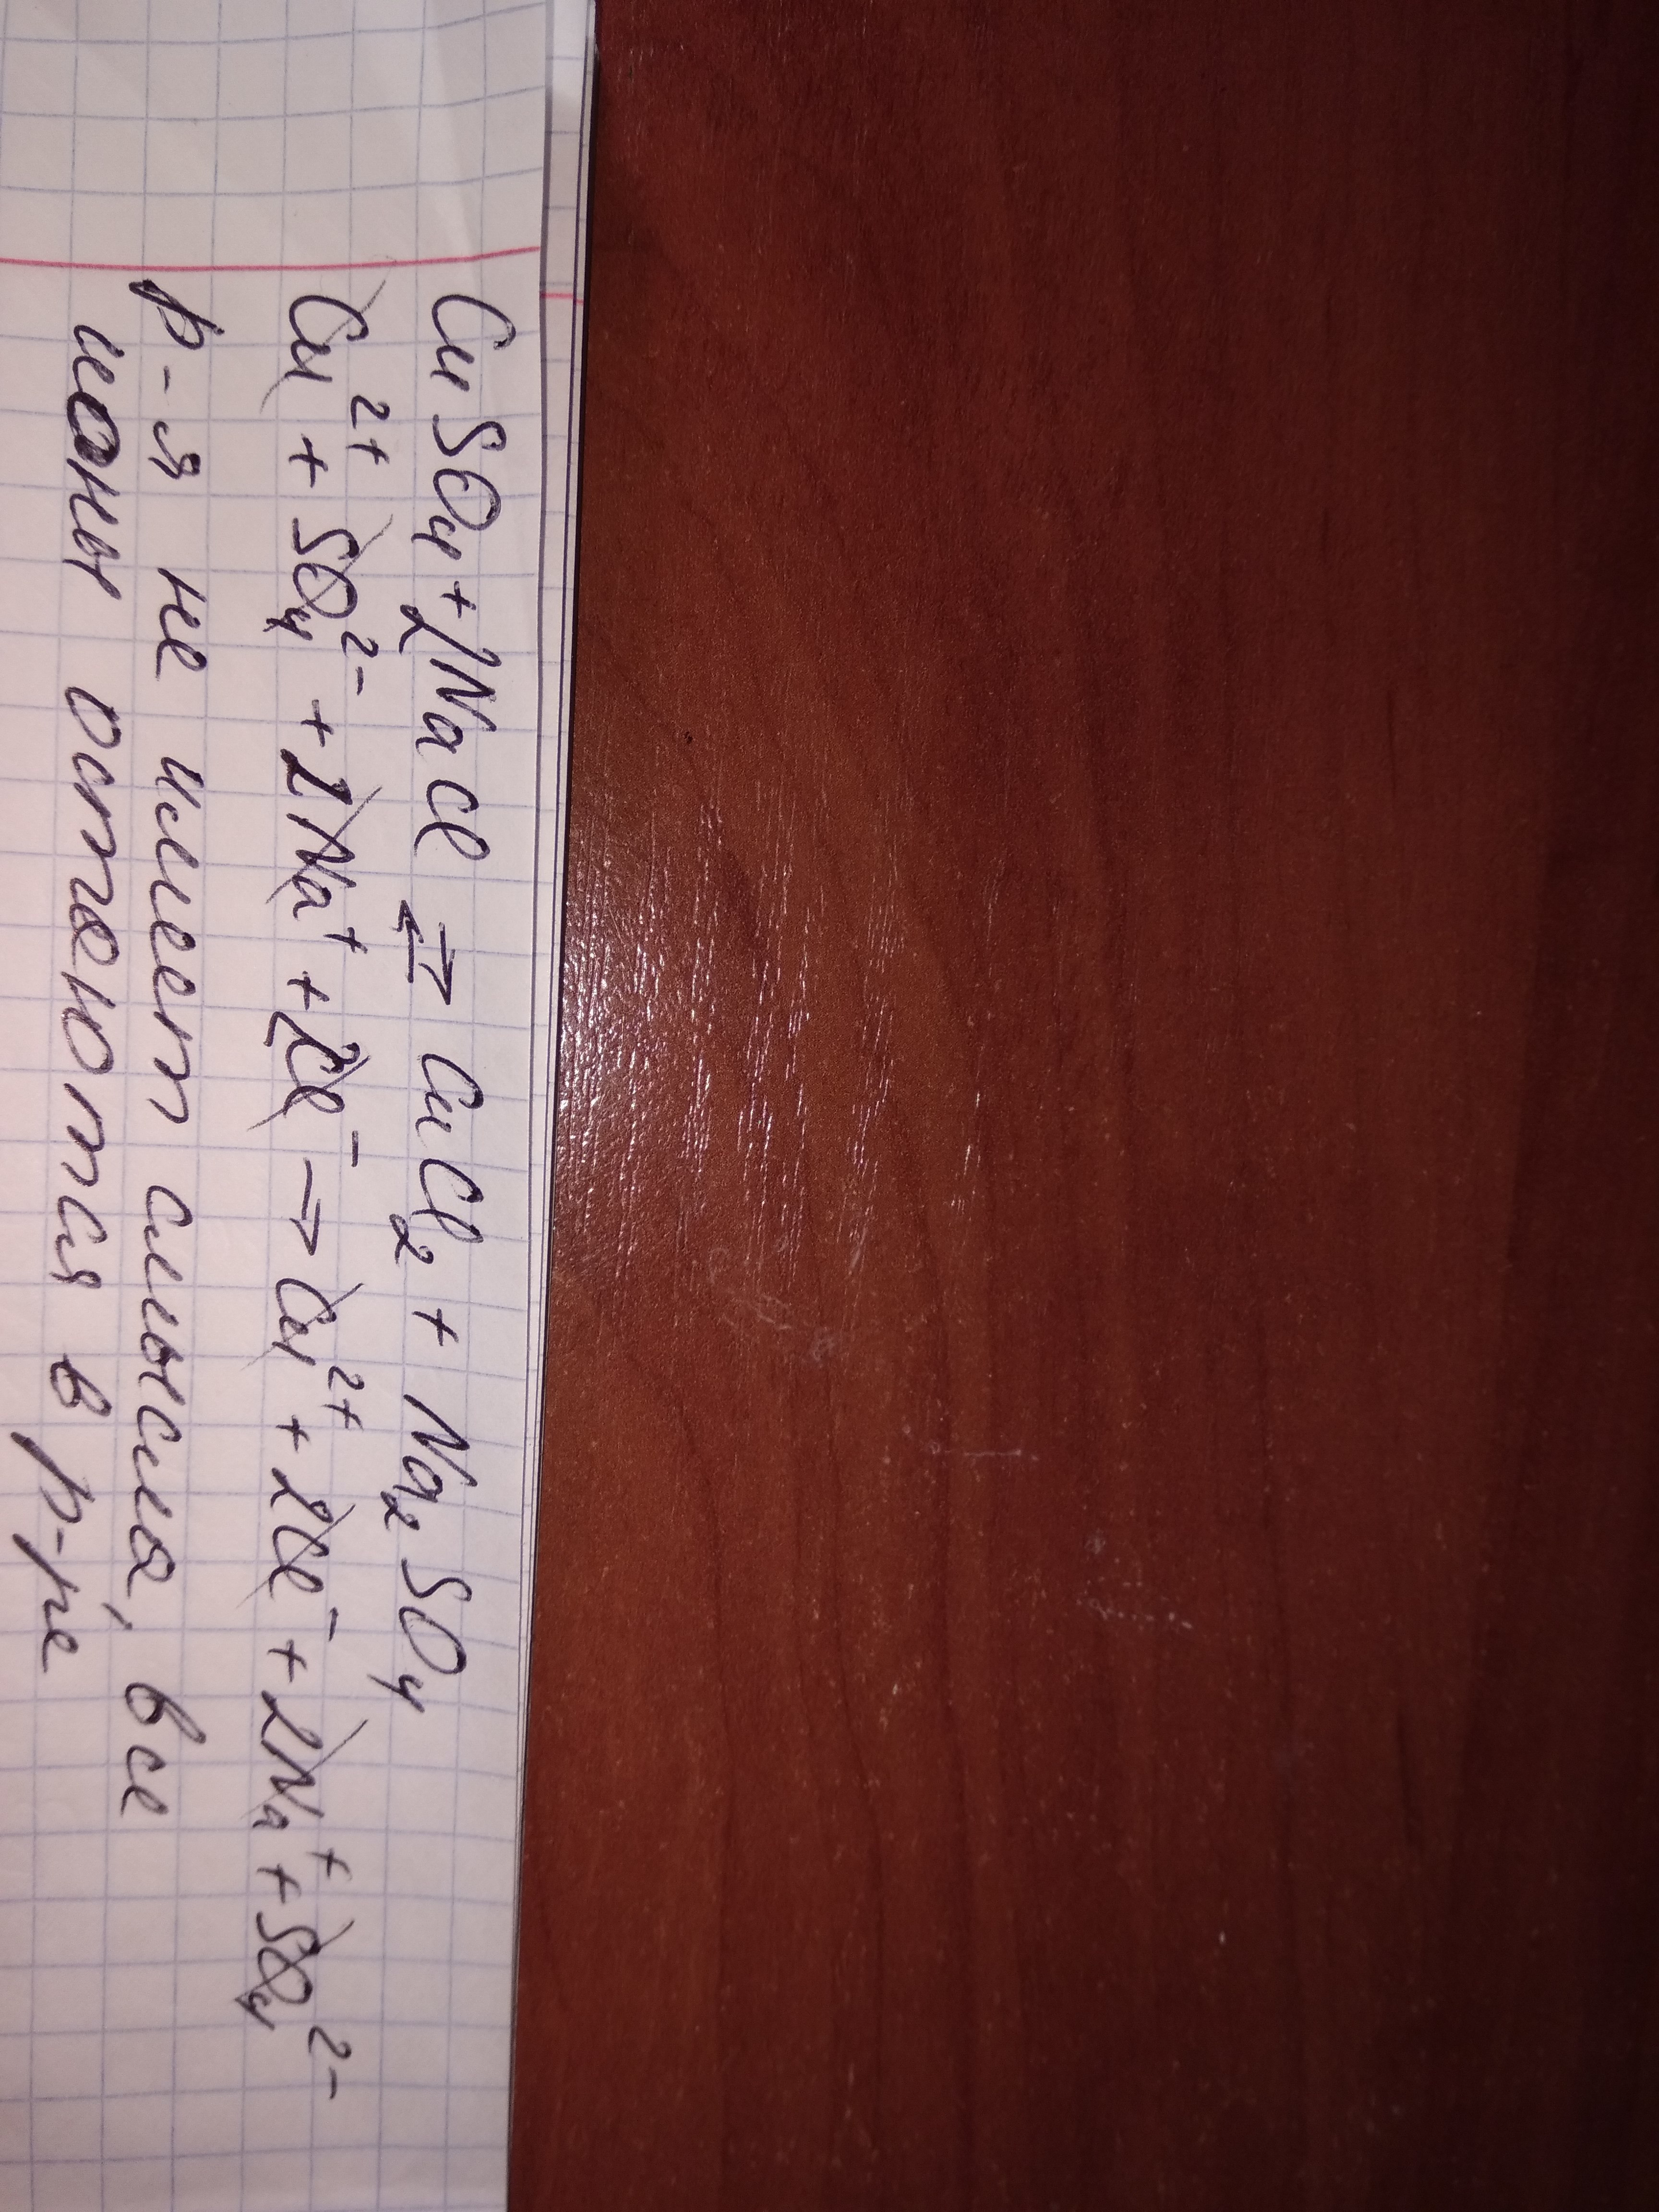 CuSO₄ + 2NaCl ⇄ CuCl₂ + Na₂SO₄
Cu²⁺ + SO₄²⁻ + 2Na⁺ + 2Cl⁻ → Cu²⁺ + 2Cl⁻ + 2Na⁺ + SO₄²⁻
р-я не имеет смысла, все
ионы остаются в р-ре